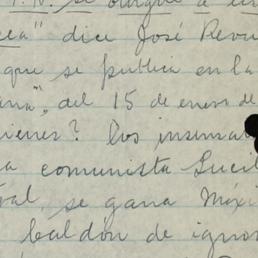 se otorgue a un
dice José Revu
que se publica en la
ana", del 15 de enero de
ienes? Los insumi
a comunista Lucil
val, se gana Móxi
baldón de ignom